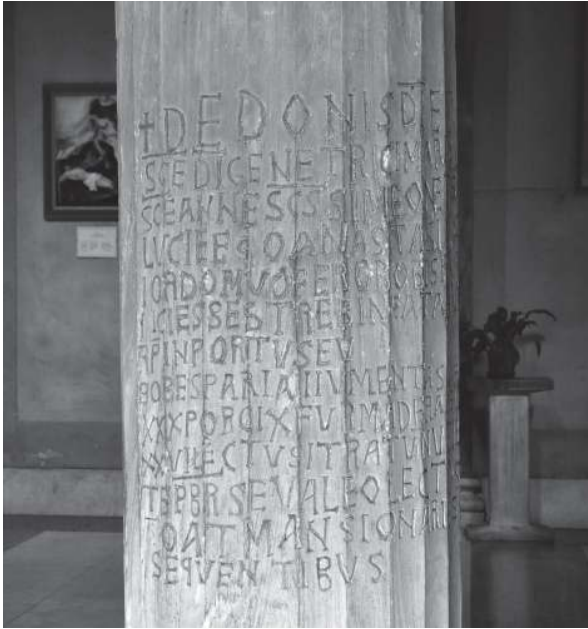 †DEDONISDE
SCEDIGENETRICIMAR
SCEANNESCSSIMEONE
LUCIEEGOANASTASI
IORDOMVOFEROBOBES
ICIESSESTREBINEATA
RPINPORTVSEV
BOBESPARIAIIIUMENTAS
XXXPORCIXFVRMADERA
XXVILECTVSITRATVNV
TBPBRSEVALEOLECT
OATMANSIONARI
SEQVENTIBVS